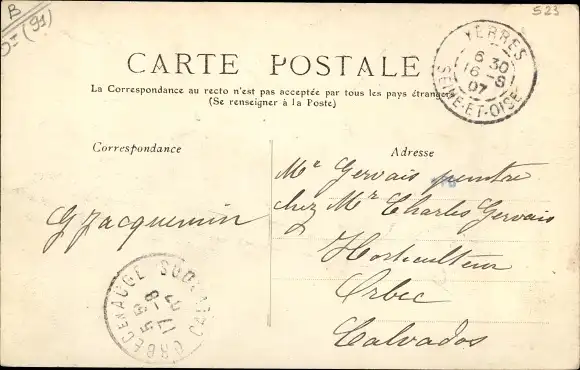 B
(91)
523
CARTE POSTALE
La Correspondance au recto n'est pas acceptée par tous les pays étrangers
(Se renseigner à la Poste)
YERRES
6 30
16 -8
07
SEINE-ET-OISE
Correspondance
Adresse
G Jacquemin
Mr Gervais peintre
chez Mr Charles Gervais
Horticulteur
Orbec
Calvados
ORBEC EN AUGE
17 -8
07
CALVADOS